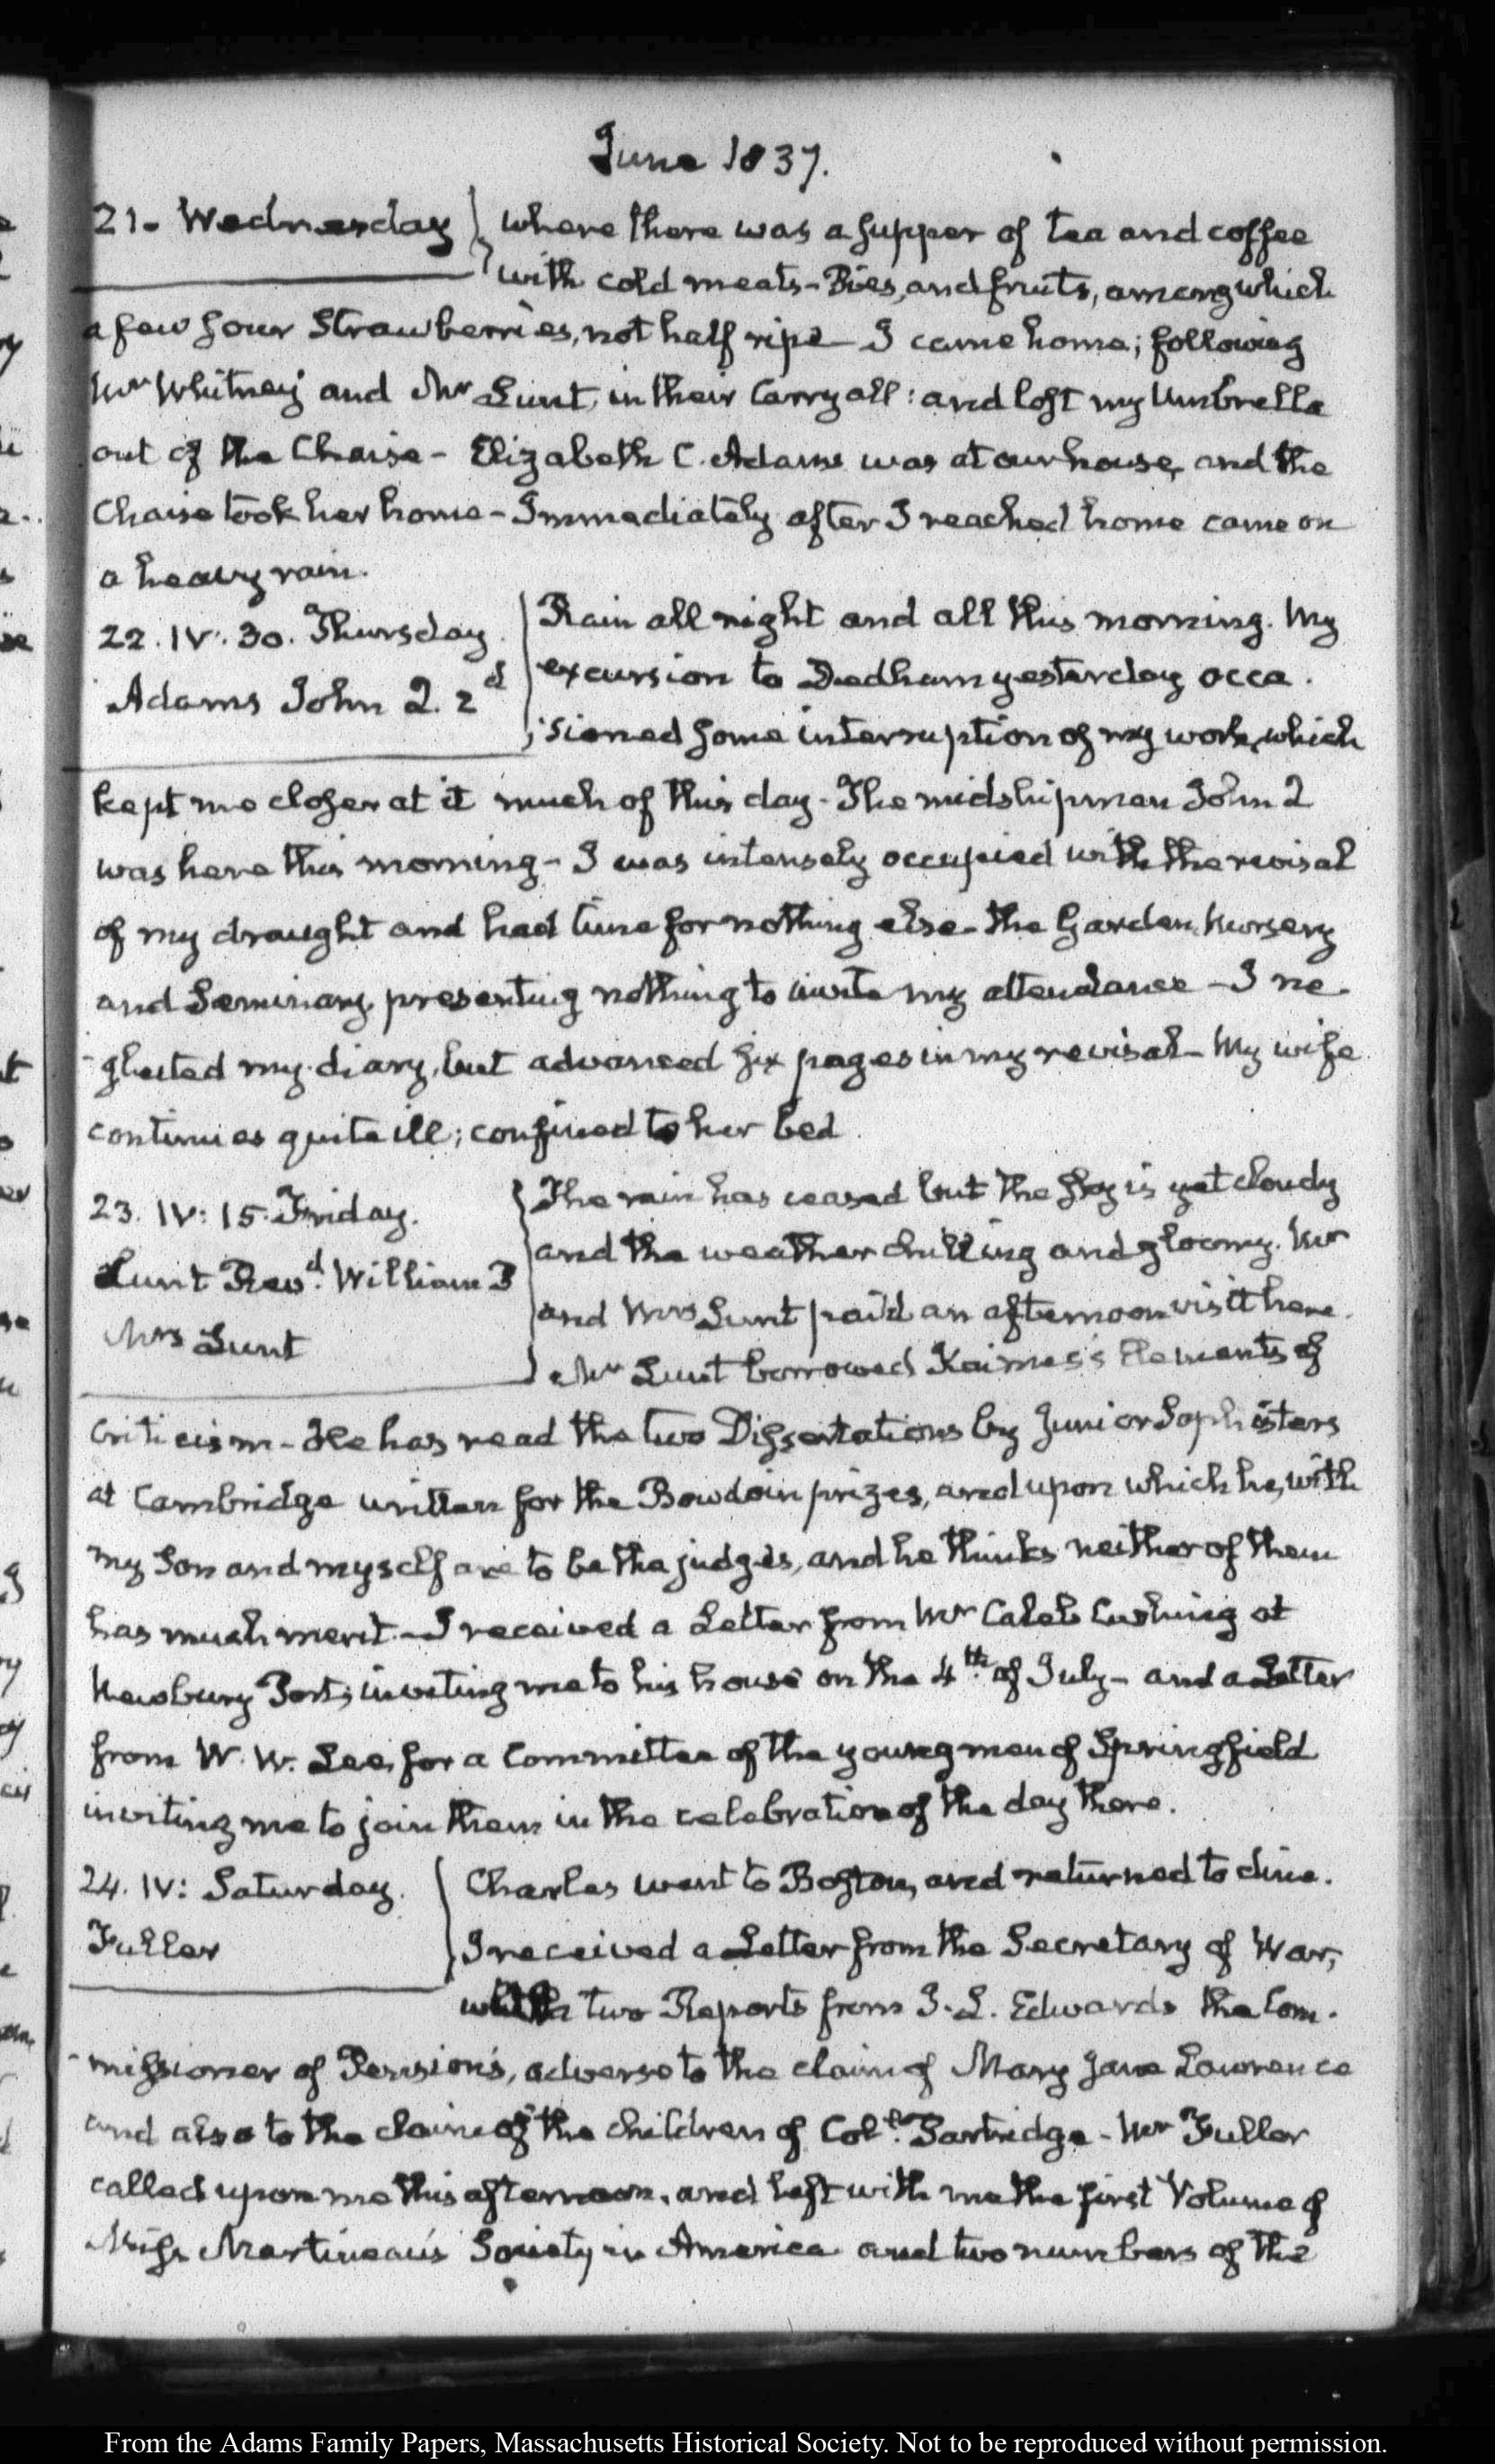 June 1837.
21. Wednesday where there was a supper of tea and coffee
with cold meats - Pies, and fruits, among which
a few sour Strawberries, not half ripe - I came home; following
Mr Whitney and Mr Lunt, in their Carryall: and lost my Umbrella
out of the Chaise - Elizabeth C. Adams was at our house, and the
Chaise took her home - Immediately after I reached home came on
a heavy rain.
22. IV: 30. Thursday
Adams John Q. 2d
Rain all night and all this morning. My
excursion to Dedham yesterday occa-
-sioned some interruption of my work, which
kept me closer at it much of this day - The midshipman John Q
was here this morning - I was intensely occupied with the revisal
of my draught and had time for nothing else - the Garden, Nursery
and Seminary, presenting nothing to invite my attendance - I ne-
-glected my diary, but advanced six pages in my revisal - My wife
continues quite ill; confined to her bed.
23. IV: 15. Friday.
Lunt Revd. William P
Mrs Lunt
The rain has ceased but the sky is yet cloudy
and the weather chilling and gloomy. Mr
and Mrs Lunt paid an afternoon visit here.
Mr Lunt borrowed Kaimes's Elements of
Criticism - He has read the two Dissertations by Junior Sophisters
at Cambridge written for the Bowdoin prizes, and upon which he, with
my Son and myself are to be the judges, and he thinks neither of them
has much merit. - I received a Letter from Mr Caleb Cushing at
Newbury Port, inviting me to his house on the 4th. of July - and a Letter
from W. W. Lee, for a Committee of the young men of Springfield
inviting me to join them in the celebration of the day there.
24. IV: Saturday.
Fuller
Charles went to Boston, and returned to dine.
I received a Letter from the Secretary of War,
with two Reports from J. L. Edwards the Com-
-missioner of Pensions, adverse to the claim of Mary Jane Lawrence
and also to the claim of the children of Coll. Partridge - Mr Fuller
called upon me this afternoon, and left with me the first Volume of
Miss Martineau's Society in America and two numbers of the
From the Adams Family Papers, Massachusetts Historical Society. Not to be reproduced without permission.